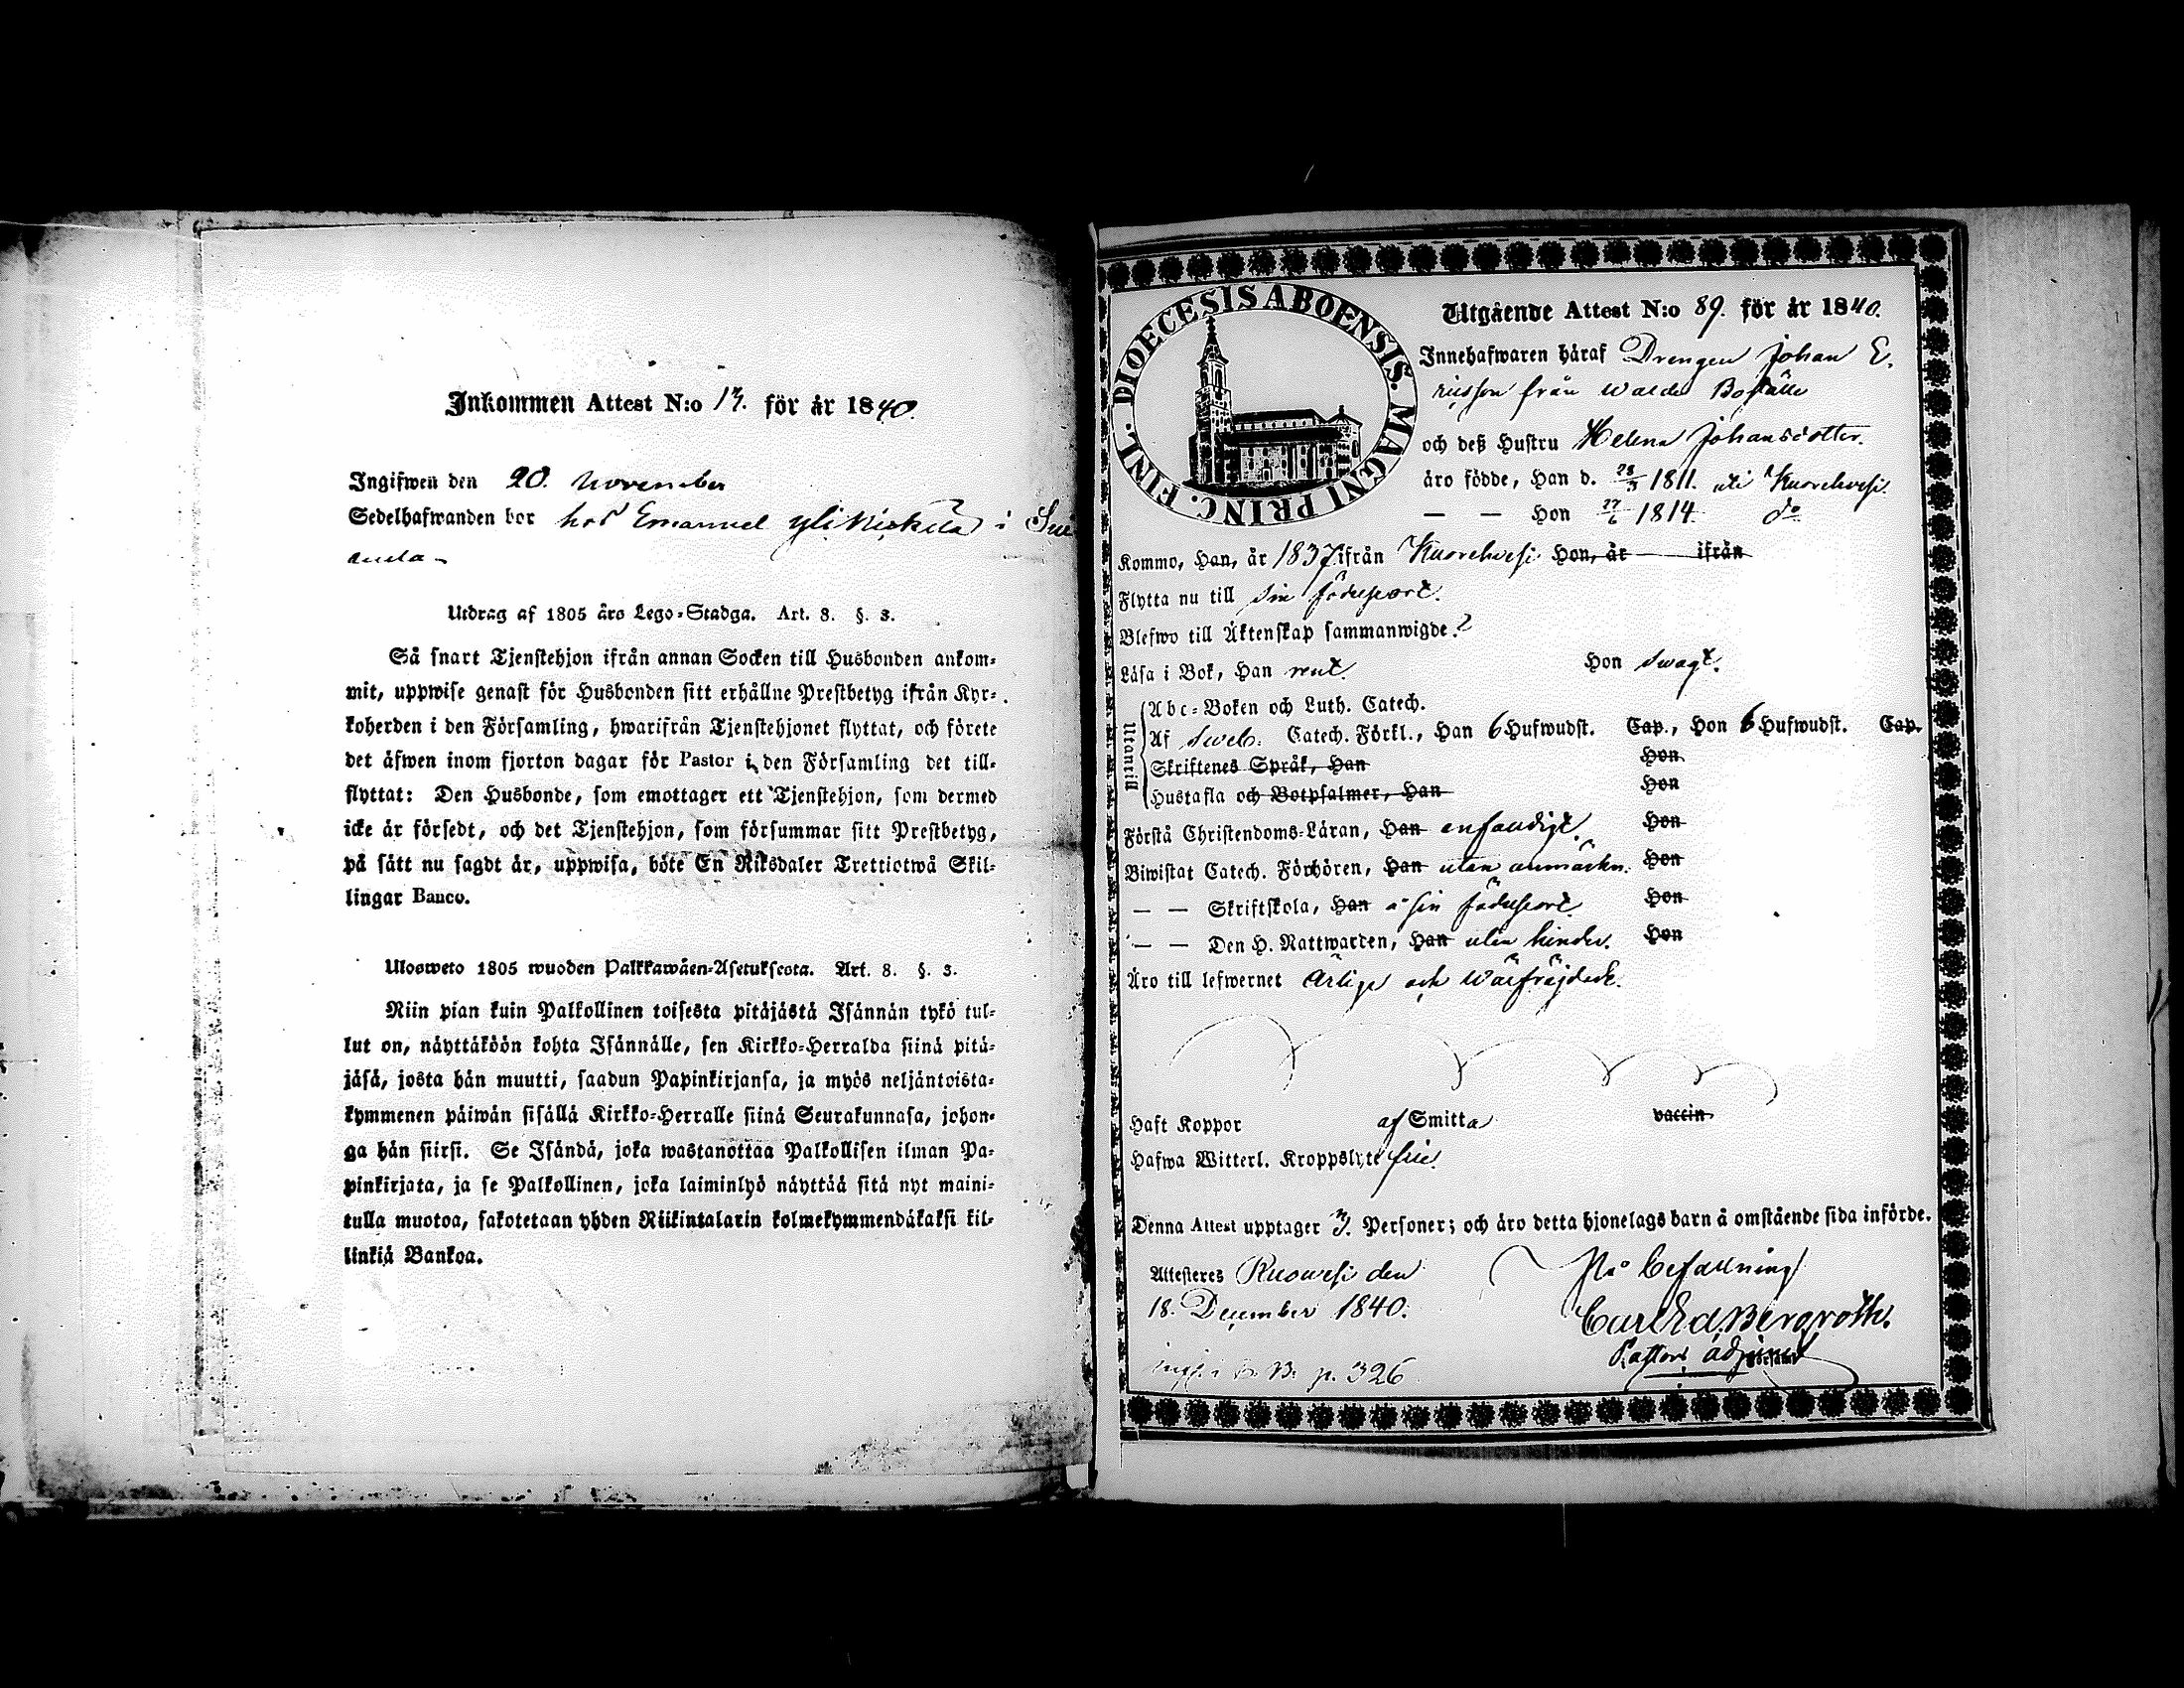 Inkommen Attest N:o 13. för år 1840.
Ingifwen den 20. November
Sedelhafwanden bor hos Emanuel yli Kiskila i
Utdrag af 1805 års Lego-Stadga. Art. 8. §. 3.
Så snart Tjenstehjon ifrån annan Socken till Husbonden ankom-
mit, uppwise genast för Husbonden sitt erhållne Prestbetyg ifrån Kyr-
koherden i den Församling, hwarifrån Tjenstehjonet flyttat, och förete
det äfwen inom fjorton dagar för Pastor i den Församling det till-
flyttat: Den Husbonde, som emottager ett Tjenstehjon, som dermed
icke är försedt, och det Tjenstehjon, som försummar sitt Prestbetyg,
på sätt nu sagdt är, uppwisa, böte En Riksdaler Trettiotwå Skil-
lingar Banco.
Ulosweto 1805 wuoden Palkkawäen-Asetuksesta. Art. 8. §. 3.
Niin pian kuin Palkollinen toisesta pitäjästä Isännän tykö tul-
lut on, näyttäköön kohta Isännälle, sen Kirkko-Herralda siinä pitä-
jäsä, josta hän muutti, saadun Papinkirjansa, ja myös neljäntoista-
kymmenen päiwän sisällä Kirkko-Herralle siinä Seurakunnasa, johon-
ga hän siirsi. Se Isändä, joka wastanottaa Palkollisen ilman Pa-
pinkirjata, ja se Palkollinen, joka laiminlyö näyttää sitä nyt maini-
tulla muotoa, sakotetaan yhden Riikintalarin kolmekymmendäkaksi kil-
linkiä Bankoa.
DIOECESIS ABOENSIS. MAGNI PRINC. FINL.
Utgående Attest N:o 89. för år 1840.
Innehafwaren häraf Drengen Johan E.
ricsson från Walde Boställe
och deß Hustru Helena Johansdotter.
äro födde, Han d. 28/3 1811. uti Kuorehvesi.
— — Hon 27/6 1814. do
Kommo, Han, år 1837 ifrån Kuorehvesi Hon, år ifrån
Flytta nu till sin födelseort.
Blefwo till Äktenskap sammanwigde.?
Läsa i Bok, Han rent. Hon swagt.
Utantill
Abc-Boken och Luth. Catech.
Af Sweb. Catech. Förkl., Han 6 Hufwudst. Cap., Hon 6 Hufwudst. Cap.
Skriftenes Språk, Han Hon
Hustafla och Botpsalmer, Han Hon
Förstå Christendoms-Läran, Han enfaldigt. Hon
Biwistat Catech. Förhören, Han utan anmärkn. Hon
— — Skriftskola, Han å sin födelseort. Hon
— — Den H. Nattwarden, Han utan hinder. Hon
Äro till lefwernet Ärlige och Wälfrejdade.
Haft Koppor af Smitta vaccin
Hafwa Witterl. Kroppslyte frie.
Denna Attest upptager 3. Personer; och äro detta hjonelags barn å omstående sida införde.
Attesteres Kuorwesi den
18. December 1840.
På befallning
Carl Ed. Bergroth.
Pastors adjunct
p. 326